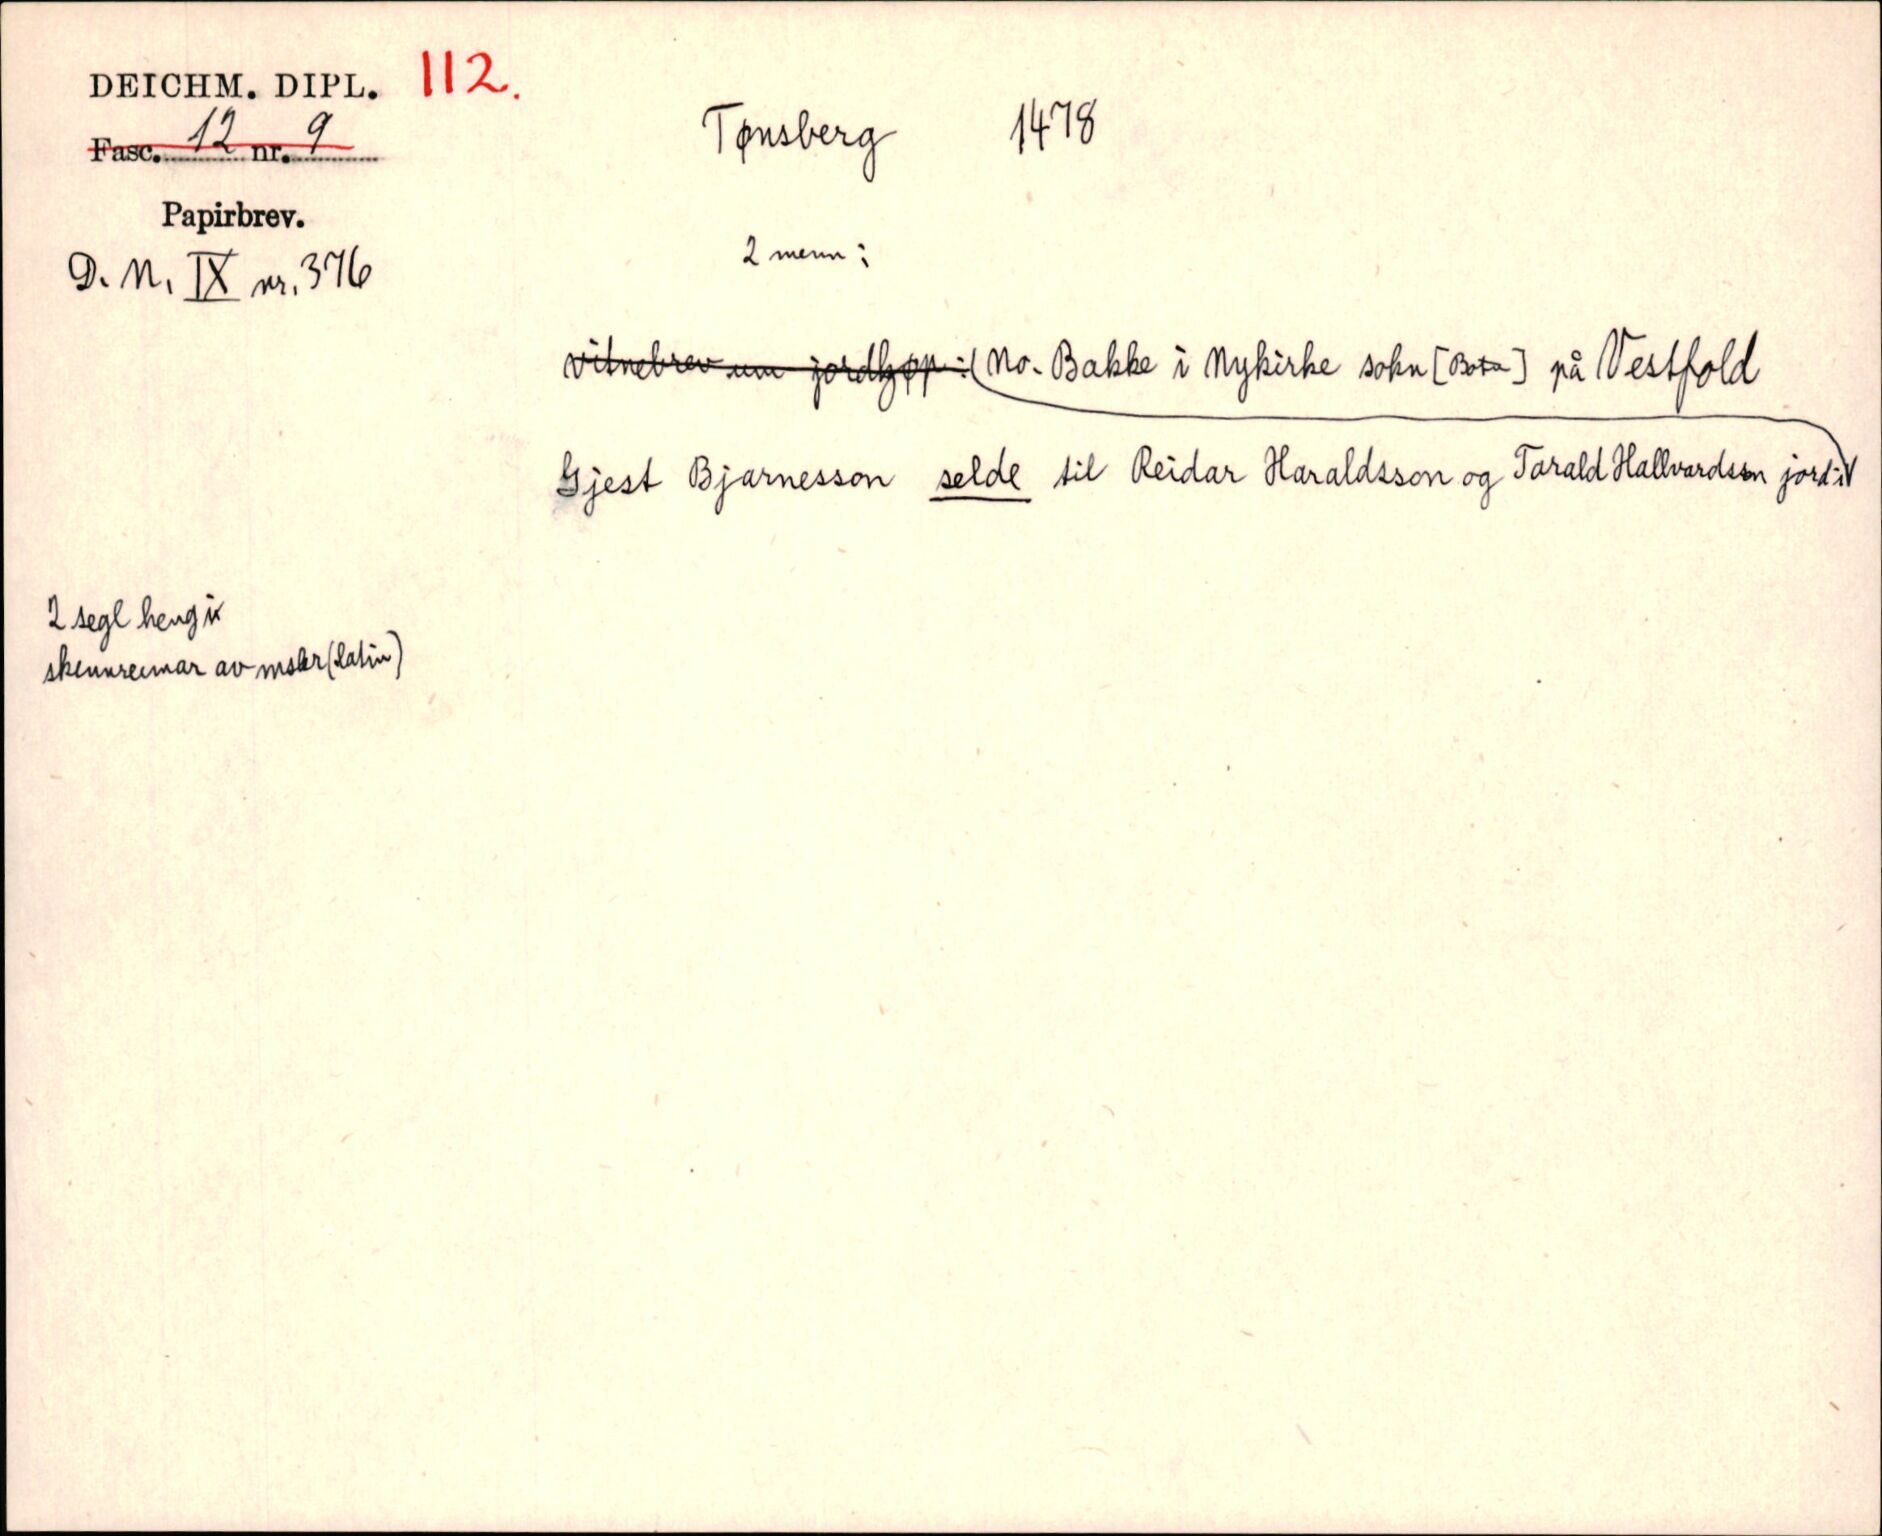 DEICHM. DIPL. 112.
Fasc. 12 nr. 9
Papirbrev.
D. N. IX nr. 376
Tønsberg 1478
2 menn:
vitnebrev um jordkjøp: (No. Bakke i Nykirke sokn [] på Vestfold
Gjest Bjarnesson selde til Reidar Haraldsson og Tarald Hallvardsson jord i
2 segl heng i
skinnreimar av (latin)